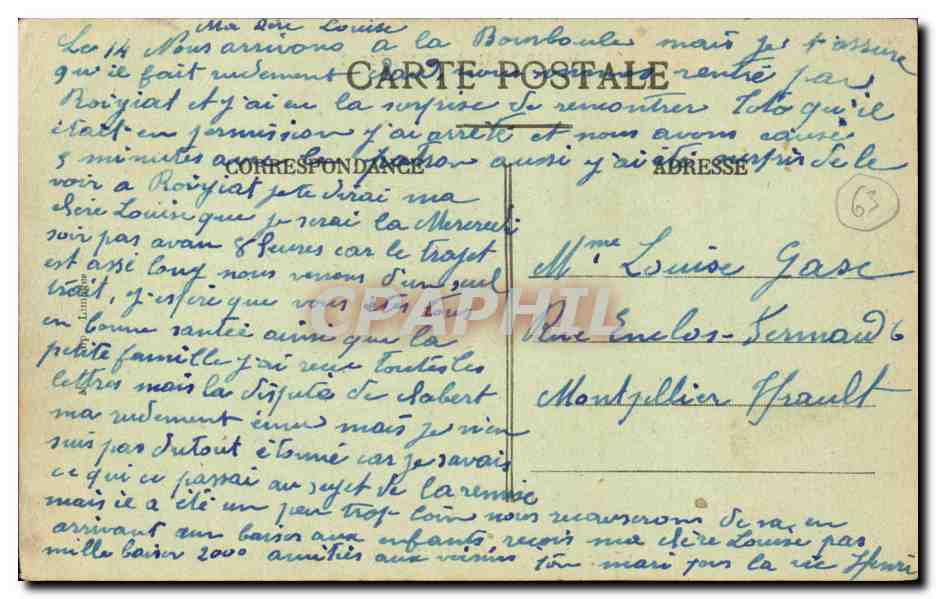 Ma chère Louise
Le 14 Nous arrivons à la Bourboule mais je t'assure
qu'il fait rudement nous sommes rentré par
CARTE POSTALE
Royiat et j'ai eu la sorprise de remontrer Toto qu'il
était en permission j'ai arrêté et nous avons causé
5 minutes avec patron aussi j'ai été surpris de le
CORRESPONDANCE
ADRESSE
voir a Royiat je te dirai ma
chère Louise que je serai la Mercredi
soir pas avan 8 heures car le trajet
est assé long nous venons d'un seul
trait, j'espère que vous êtes tous
en bonne santée ainsi que la
petite famille j'ai reçu toutes les
lettres mais la dispute de Robert
ma rudement ému mais je n'en
suis pas dutout étonné car je savais
ce qui ce passai au sujet de la remise
mais il a été un peu trop loin nous recauserons de sa, en
arrivant un baiser aux enfants reçois ma chère Louise pas
mille baiser 2000 amitiés aux voisins ton mari pour la vie Henri
63
Mme Louise Gasc
Rue Enclos-Fermaud 6
Montpellier Hrault
CPAPHIL